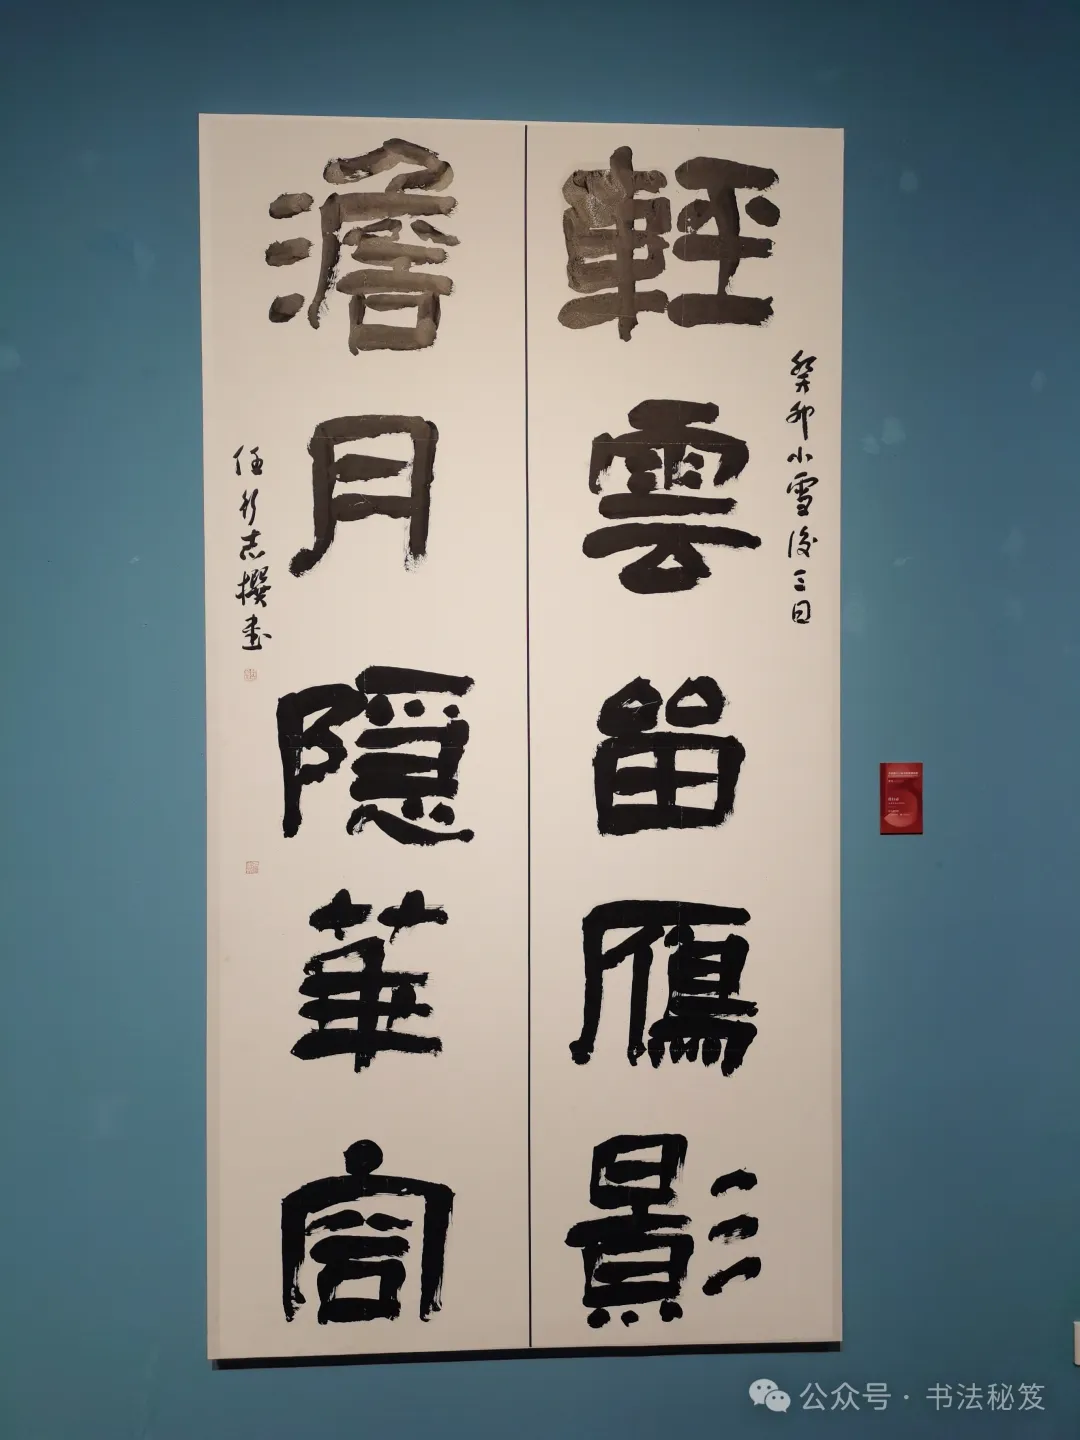 癸卯小雪後三日
輕雲畱鴈影
澹月隱華容
任行志撰書
公众号·书法秘笈